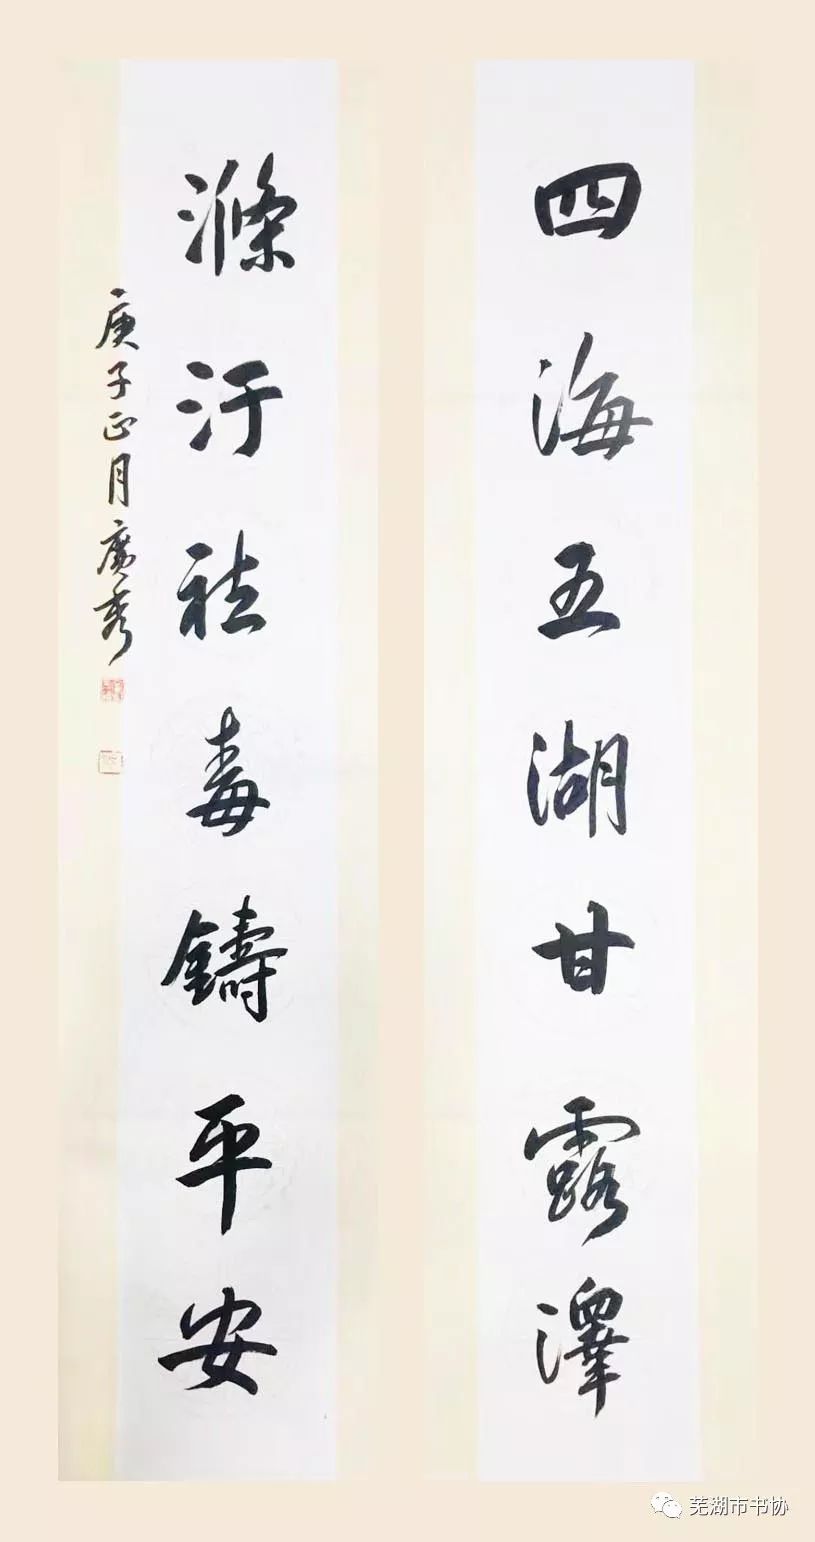 四海五湖甘露澤
滌汙祛毒鑄平安
庚子正月廣秀
芜湖市书协